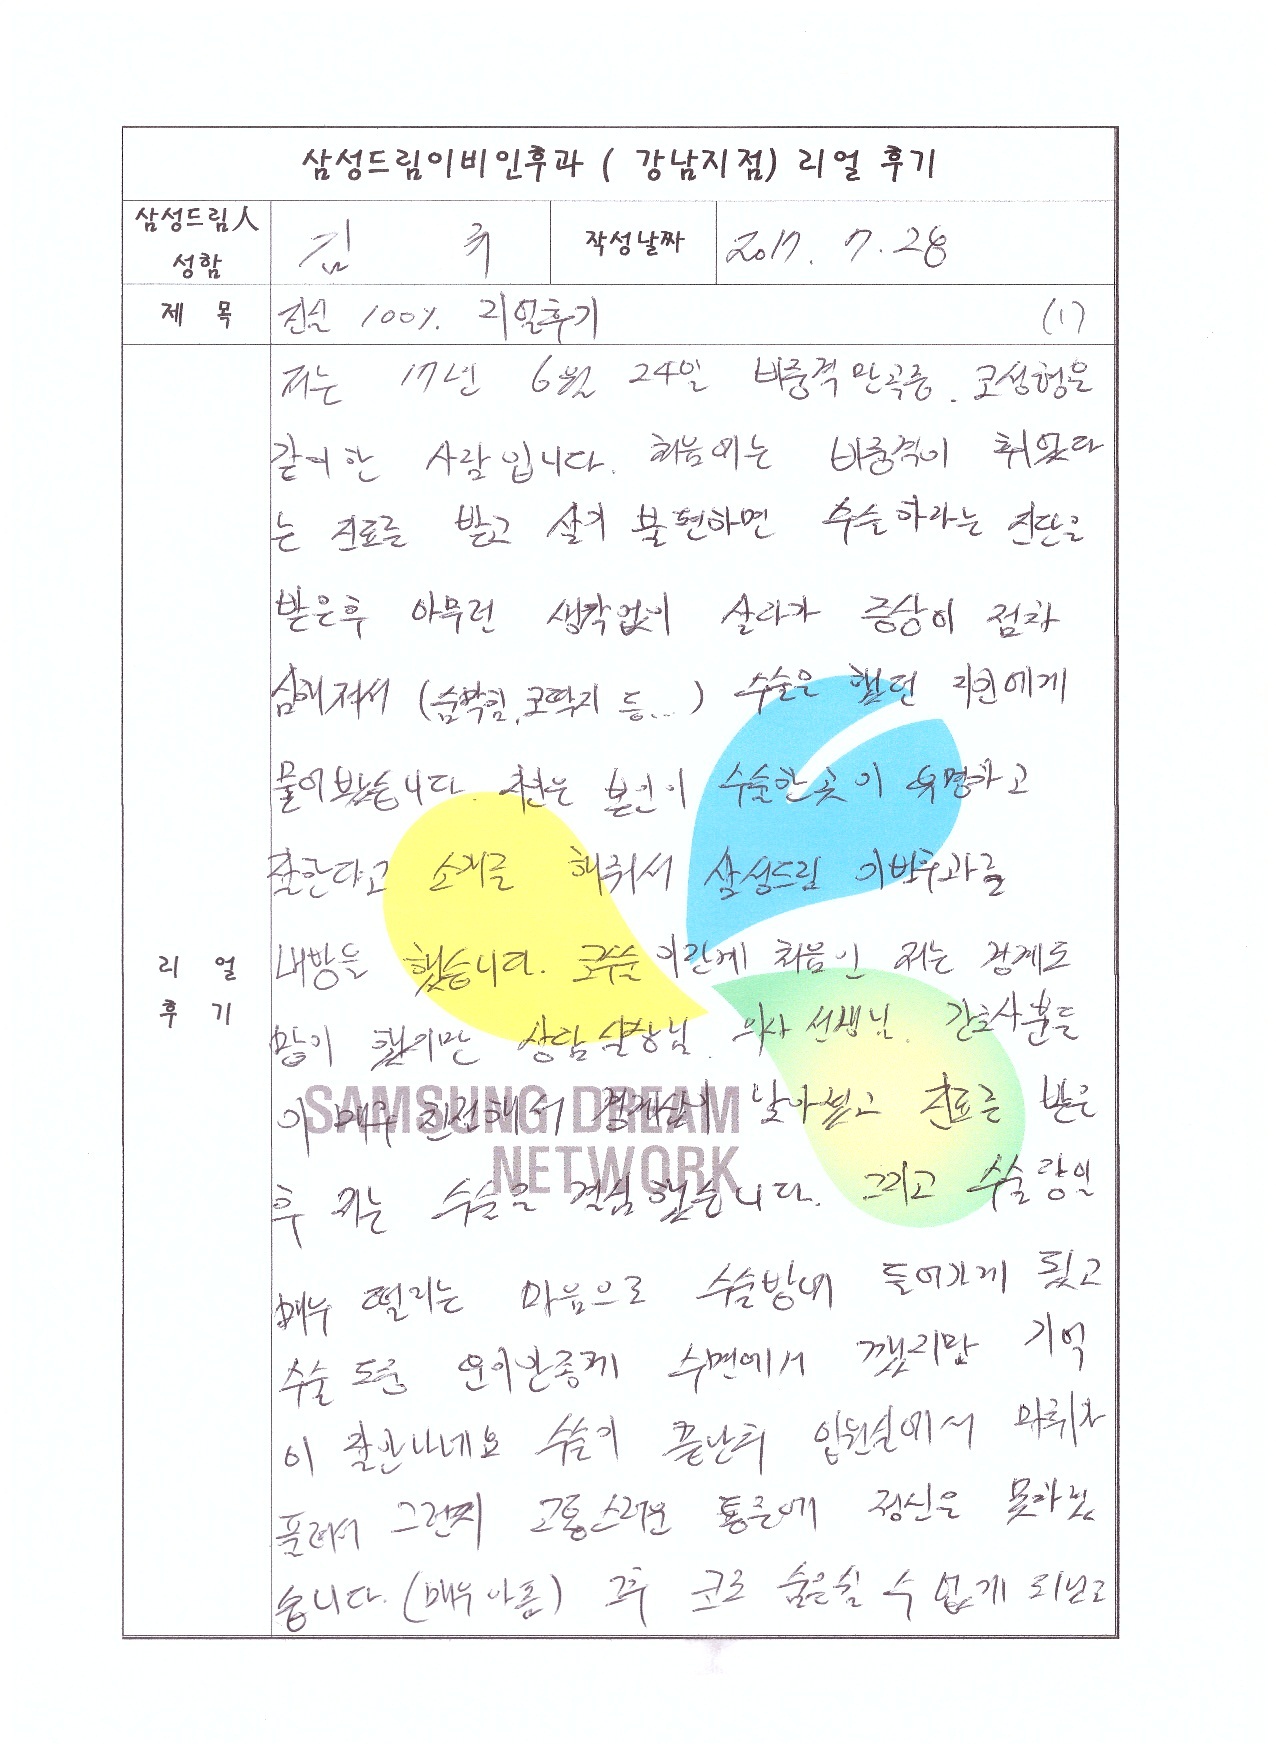 삼성드림이비인후과 ( 강남지점) 리얼 후기
삼성드림人 성함
김 휘
작성날짜
2017. 7. 28
제 목
진실 100%. 리얼후기 (1)
리 얼 후 기
저는 17년 6월 24일 비중격만곡증, 코성형을
같이한 사람입니다. 처음에는 비중격이 휘었다
는 진료를 받고 살기 불편하면 수술하라는 진단을
받은후 아무런 생각없이 살다가 증상이 점차
심해져서 (숨막힘, 코딱지 등...) 수술은 했던 지인에게
물어봤습니다. 지인은 본인이 수술한곳이 유명하고
잘한다고 소개를 해줘서 삼성드림 이비후과를
내방을 했습니다. 코수술이란게 처음인 저는 경계도
많이 했지만 상담실장님, 의사선생님, 간호사분들
이 매우 친절해서 경계심이 낮아졌고 진료를 받은
후 저는 수술을 결심했습니다. 그리고 수술당일
매우 떨리는 마음으로 수술방에 들어가게 됬고
수술 도중 수면에서 깼지만 기억
이 잘안나네요 수술이 끝난후 입원실에서 마취가
풀려서 그런지 고통스러운 통증에 정신을 못차렸
습니다. (매우아픔) 그후 코로 숨은쉴 수 없게 되난고
SAMSUNG DREAM
NETWORK